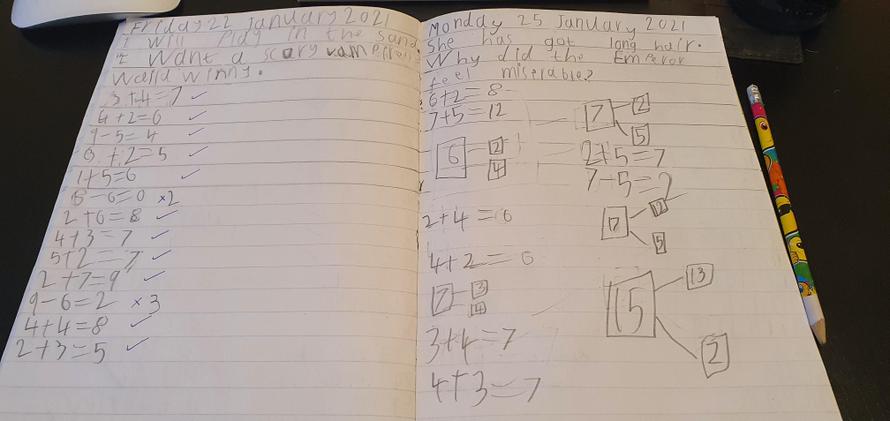 Friday 22 january 2021
I will play in the sand.
I want a scary vampire
winny.
3+4=7 ✓
4+2=6 ✓
9-5=4 ✓
3+2=5 ✓
1+5=6 ✓
8-6=0 ×2
2+6=8 ✓
4+3=7 ✓
5+2=7 ✓
2+7=9 ✓
9-6=2 ×3
4+4=8 ✓
2+3=5 ✓
Monday 25 January 2021
She has got long hair.
Why did the Emperor
feel miserable?
6+2=8
7+5=12
6 2 4
2+4=6
4+2=6
7 3 4
3+4=7
4+3=7
7 2 5
2+5=7
7-5=2
17 12 5
15 13 2